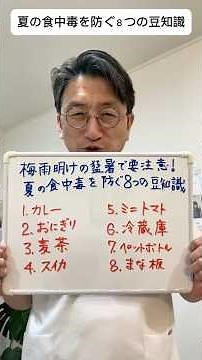 夏の食中毒を防ぐ8つの豆知識
梅雨明けの猛暑で要注意!
夏の食中毒を防ぐ8つの豆知識
1.カレー
2.おにぎり
3.麦茶
4.スイカ
5.ミニトマト
6.冷蔵庫
7.ペットボトル
8.まな板